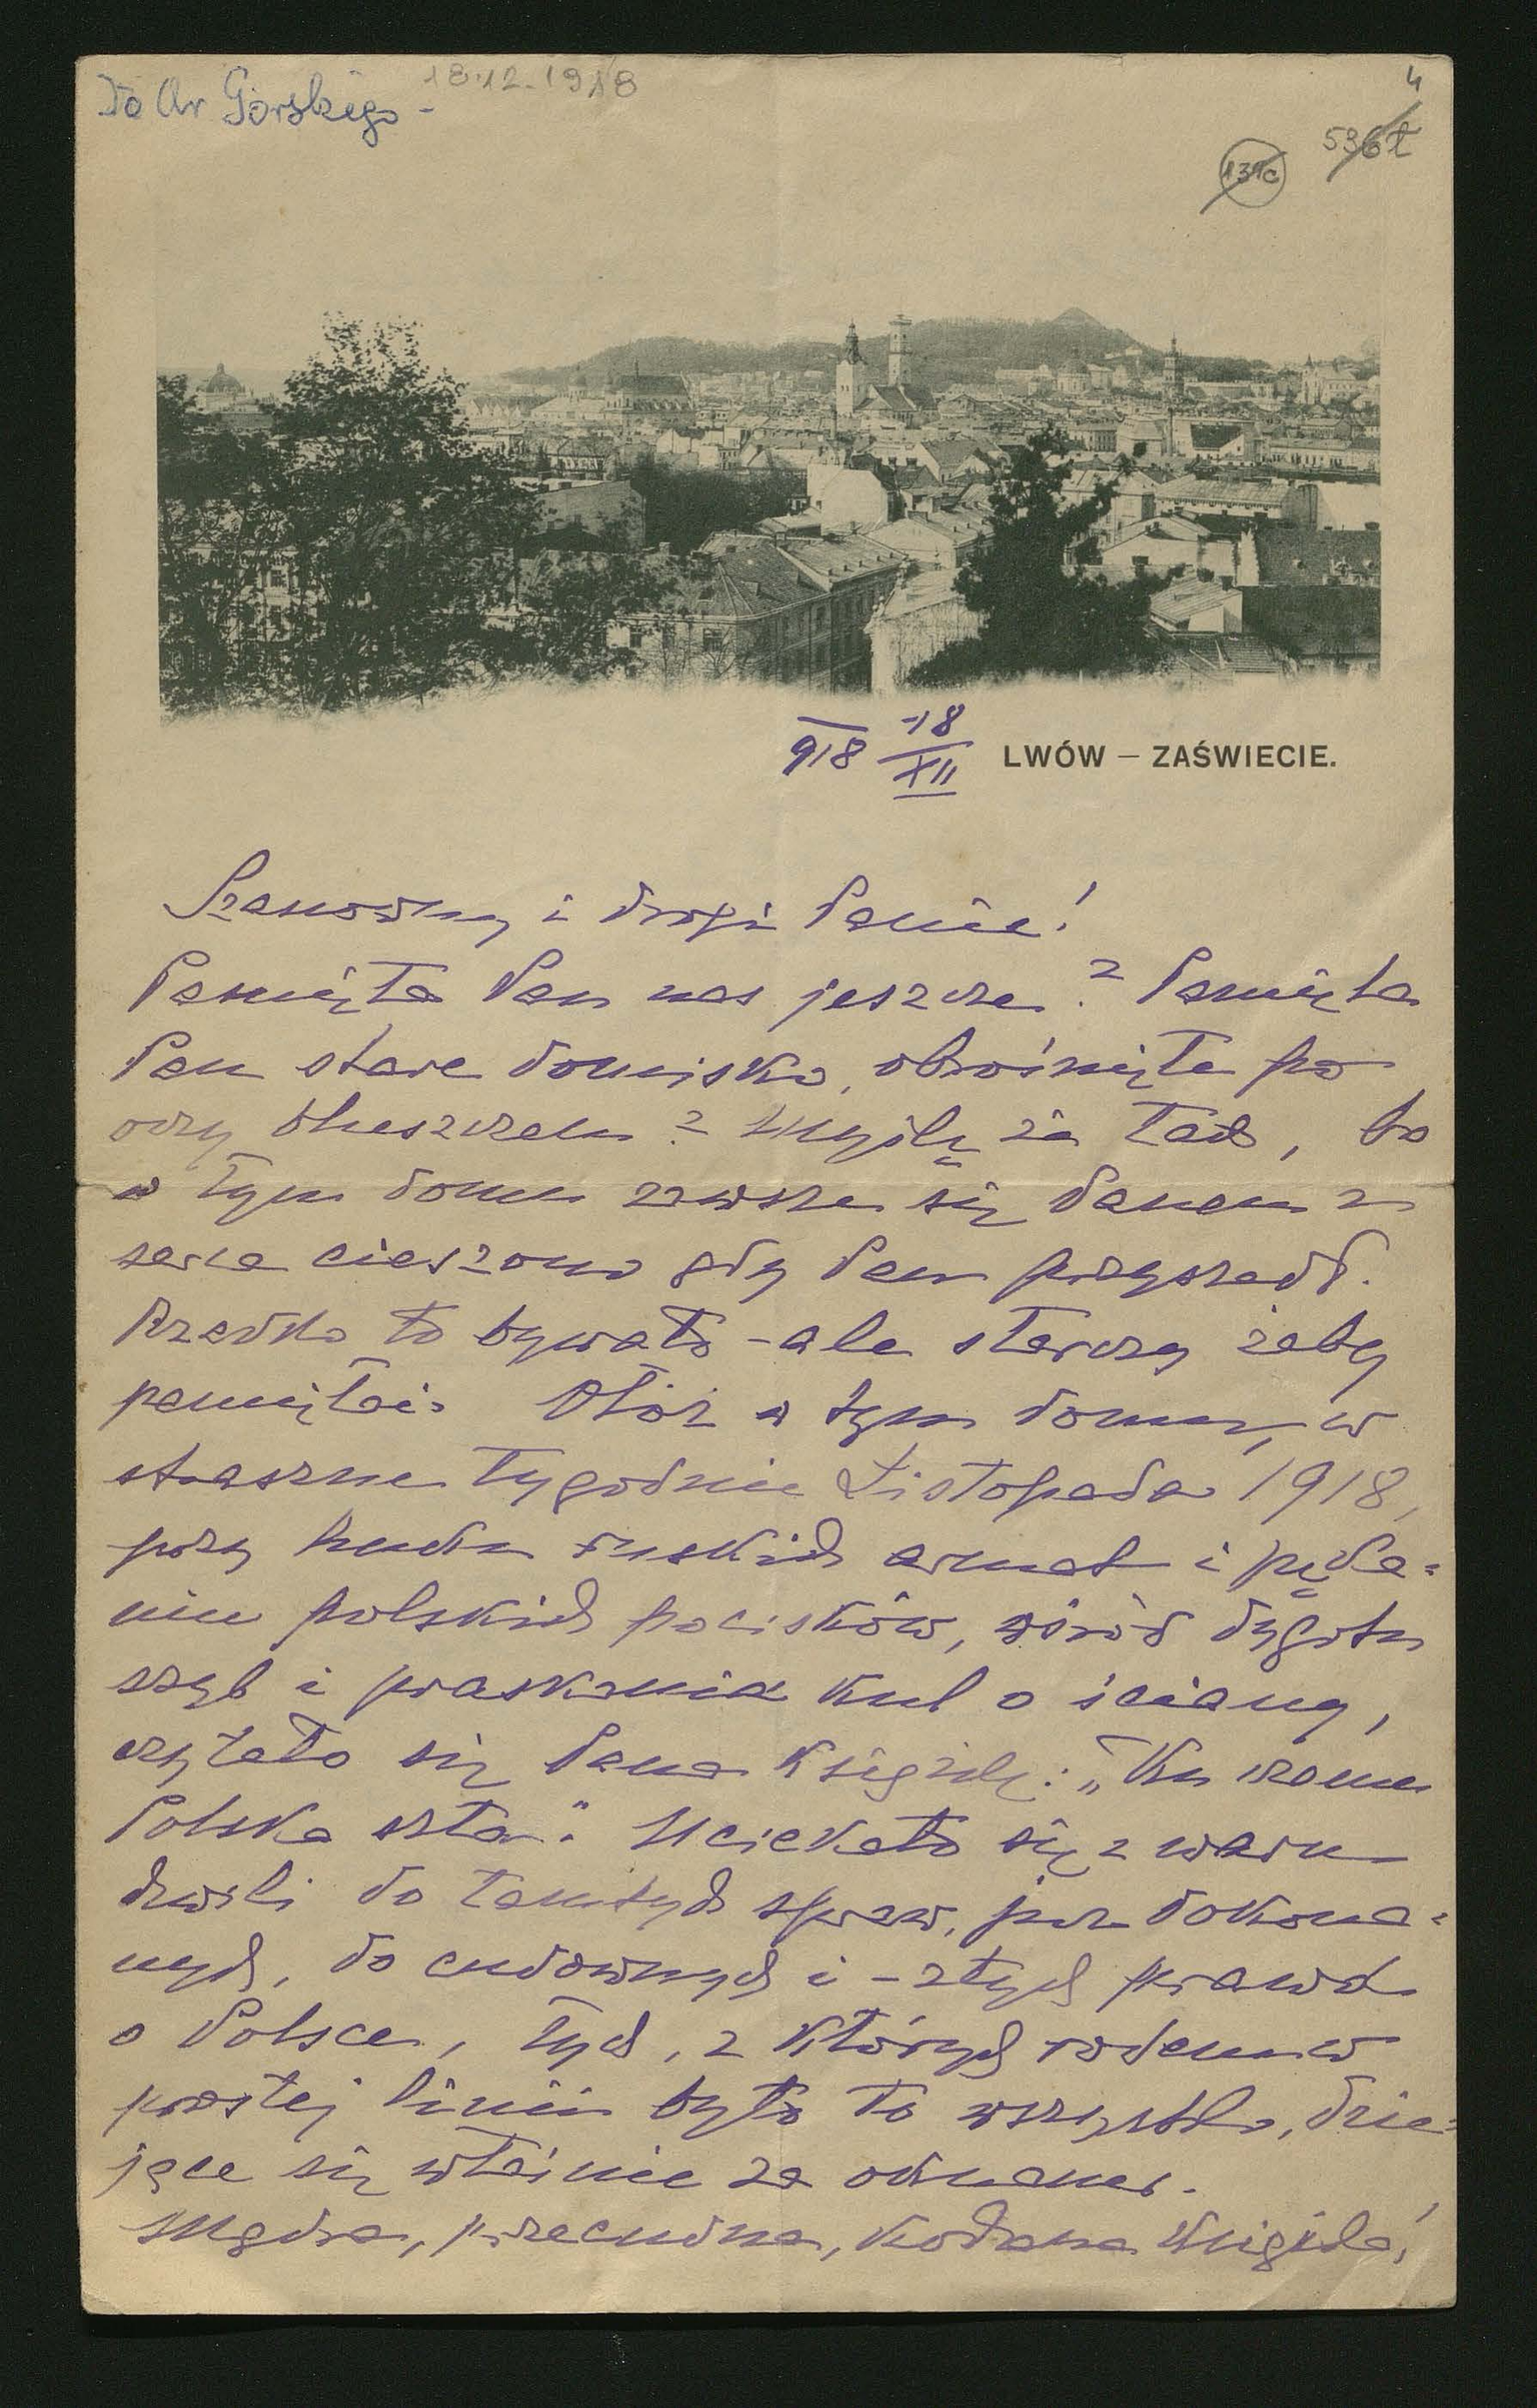 Do Ar Górskiego -
18.12.1918
4
536t
131c
918 18/XII
LWÓW – ZAŚWIECIE.
Szanowny i drogi Panie!
Pamięta Pan nas jeszcze? Pamięta
Pan stare domisko, obrośnięte po
oczy bluszczem? Myślę że tak, bo
w tym domu zawsze się Panem z
serca cieszono gdy Pan przyszedł.
Rzadko to bywało - ale starczy żeby
pamiętać. Otóż w tym domu, w
straszne tygodnie Listopada 1918,
przy huku ruskich armat i pęka=
niu polskich pocisków, wśród dygotu
szyb i praskania kul o ściany,
czytało się Pana książkę: „Ku czemu
Polska szła". Uciekało się z waru
chwili do tamtych spraw, już dokona=
nych, do cudownych i - złych prawd
o Polsce, tych, z których rodem w
prostej linii było to wszystko, dzie=
jące się właśnie za oknami.
Mądra, przecudna, kochana książka!